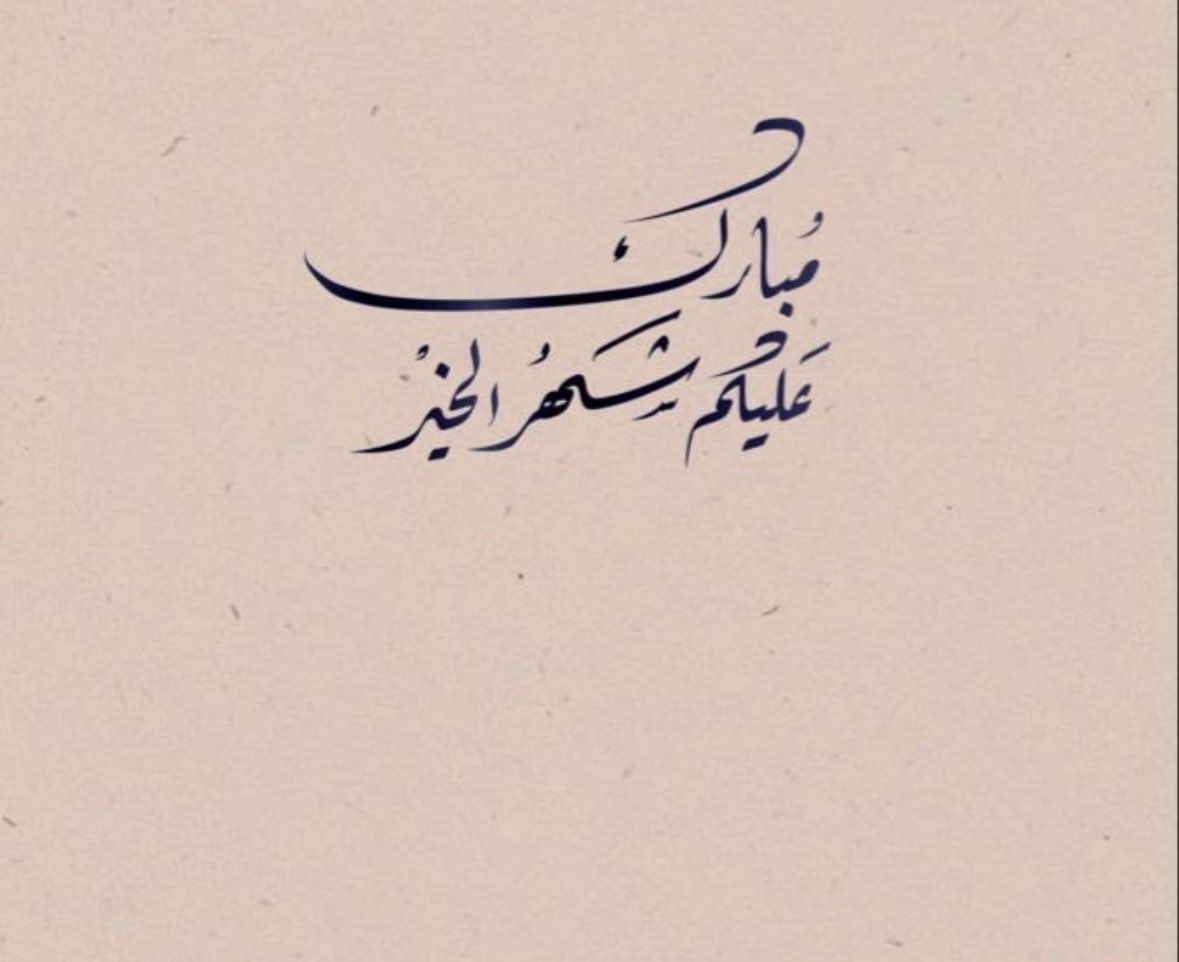 مُبارك
عَليكم شَهرُ الخيرْ